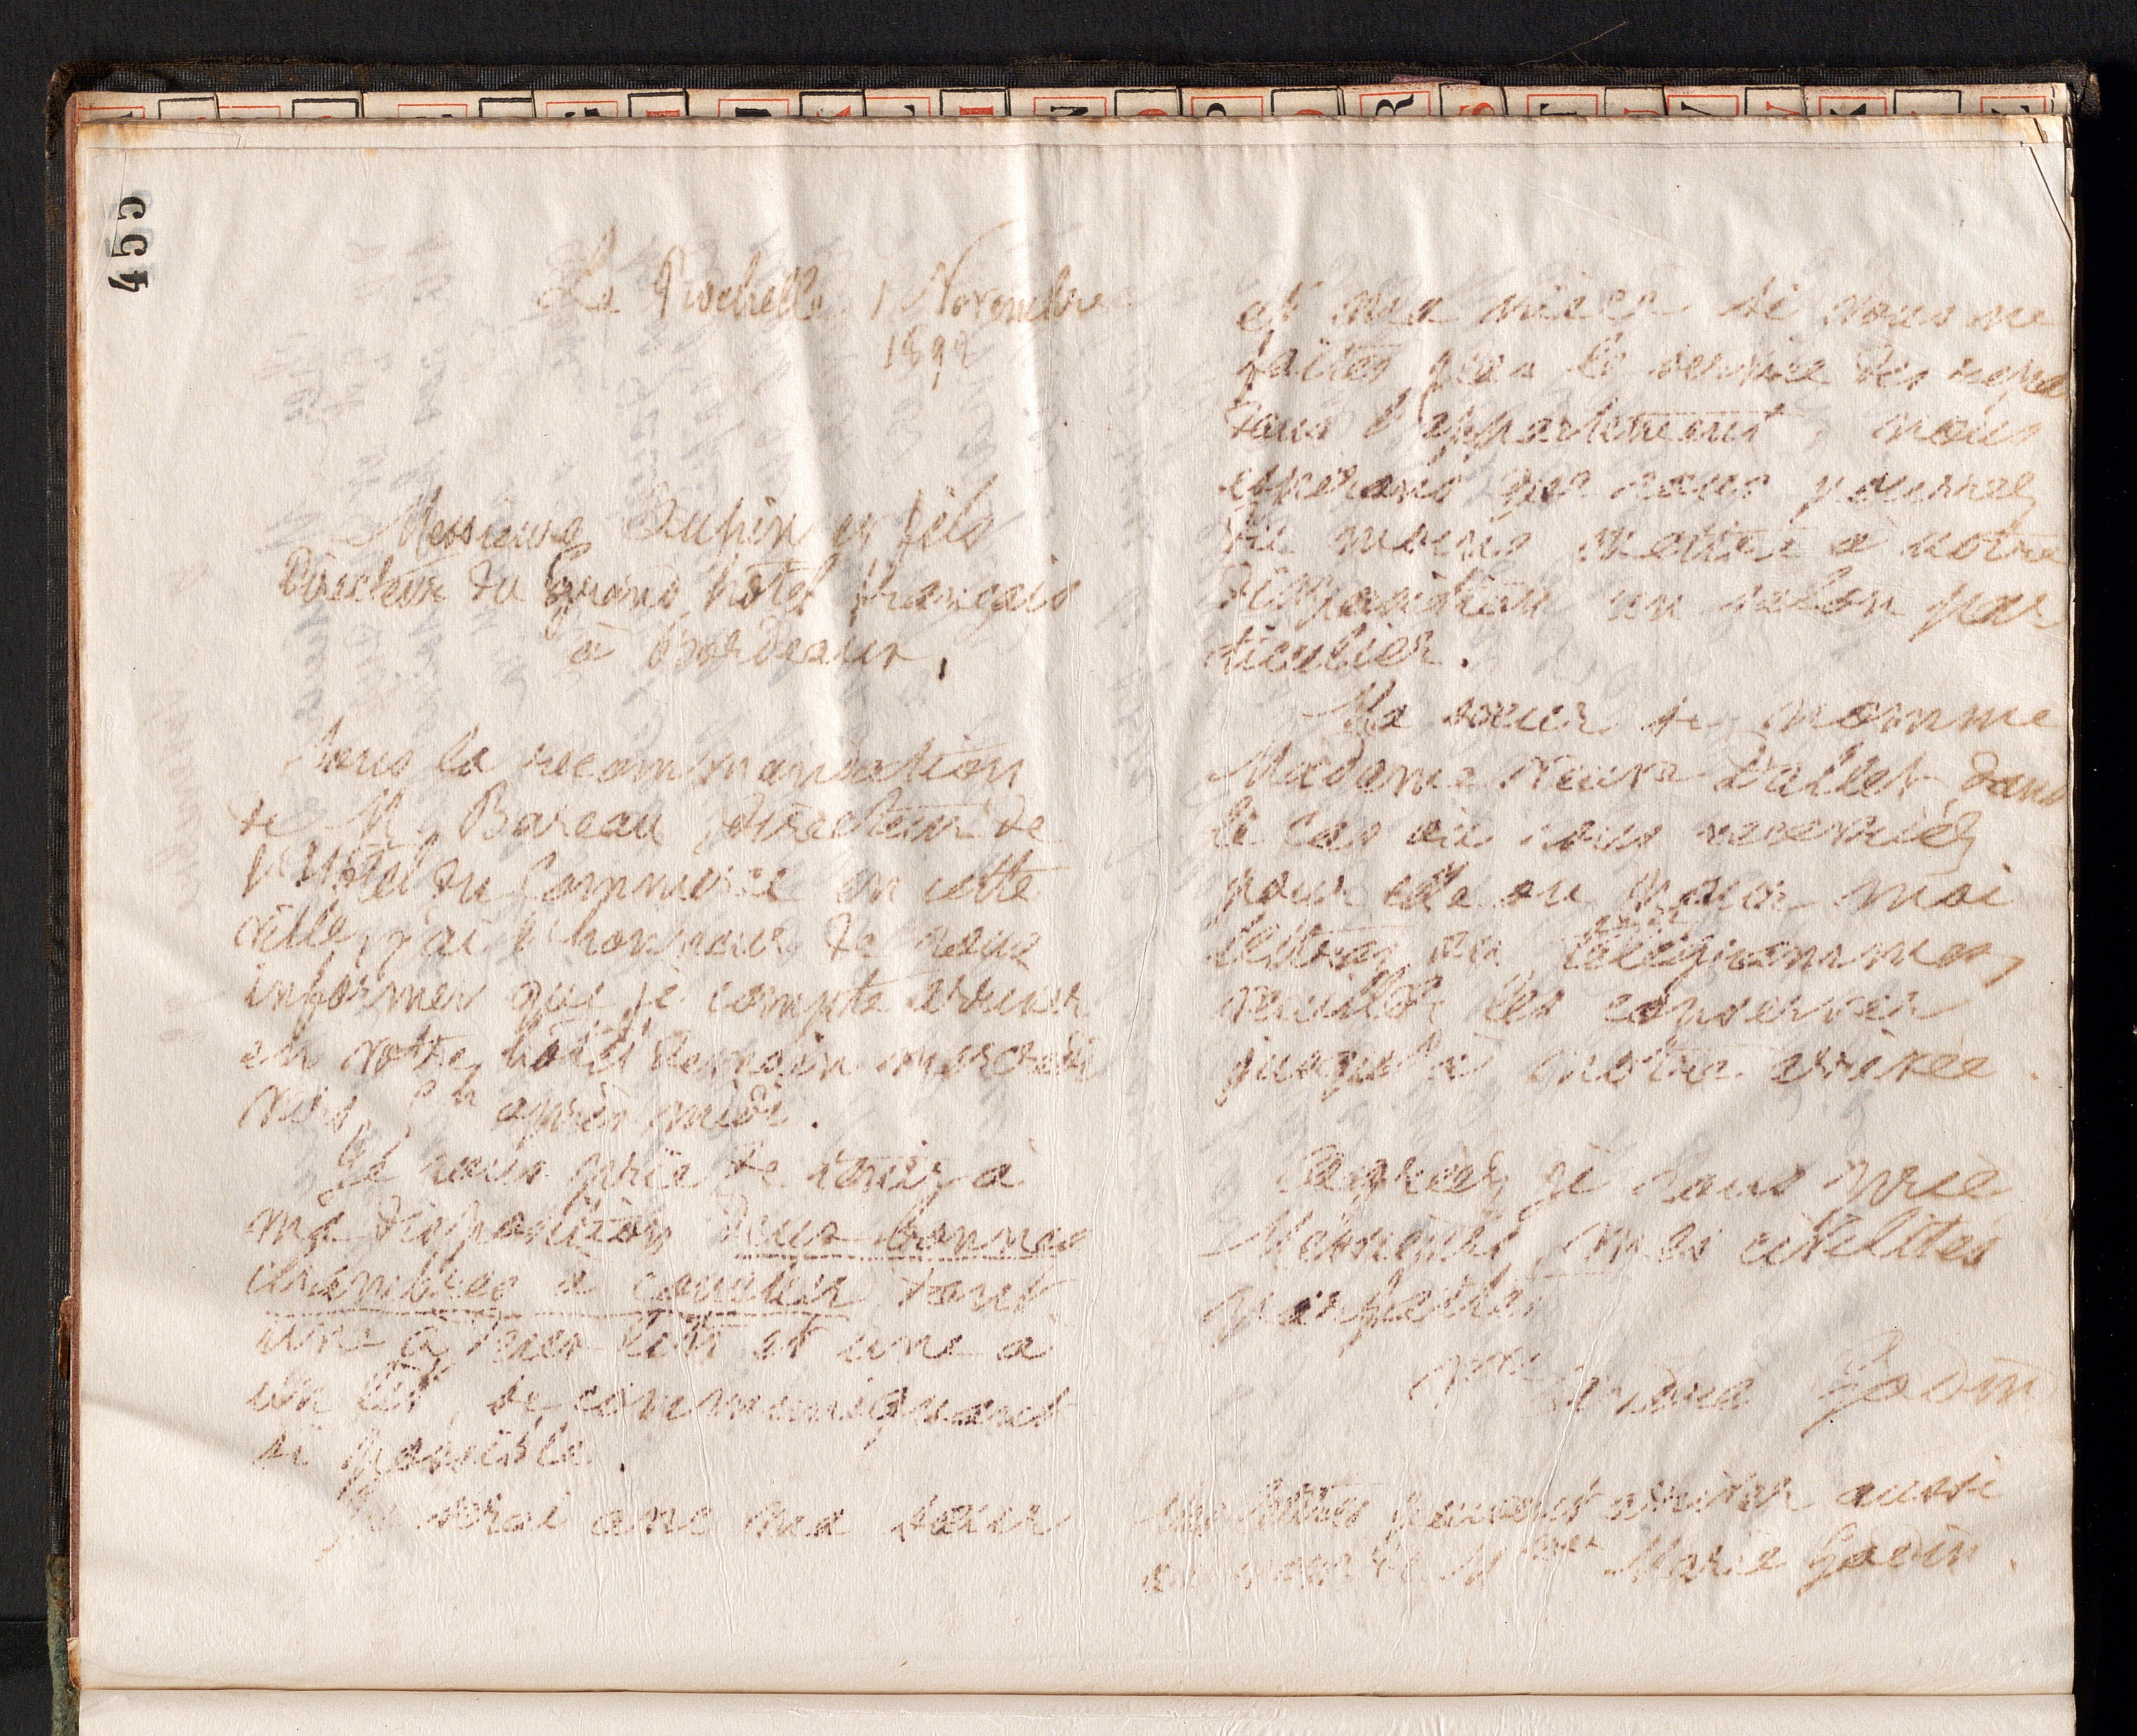 455
La Rochelle 1 Novembre
1892
Messieurs Dupin et fils
Directeur du Grand hôtel français
à Bordeaux.
Sous la recommandation
de M. Bareau directeur de
l'Hôtel du Commerce en cette
ville, j'ai l'honneur de vous
informer que je compte arriver
en votre hôtel demain mercredi
vers après midi.
Je vous prie de tenir à
ma disposition deux bonnes
chambres à coucher dont
une à deux lits et une à
un lit, se communiquant
si possible.
Je serai avec ma sœur
et ma nièce si vous ne
faites pas le service des repas
dans l'appartement, nous
espérons que vous pourrez
du moins mettre à notre
disposition un salon par
ticulier.
Ma sœur se nomme
Madame Veuve Dallet, dans
le cas où vous recevriez
pour elle ou pour moi
lettres ou télégrammes,
veuillez les conserver
jusqu'à notre arrivée.
Agréez je vous prie
Messieurs, mes civilités
parfaites
Vve Godin
Mes lettres peuvent arriver aussi
au nom de Mme Marie Godin.